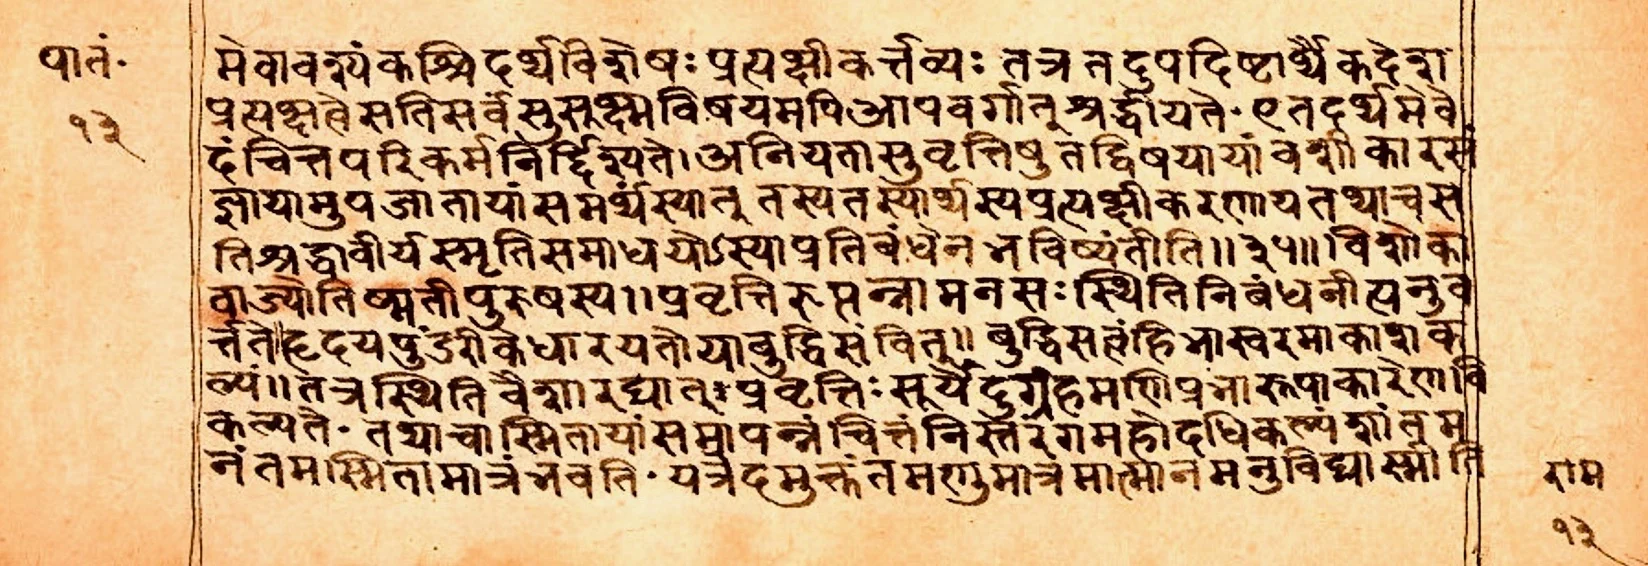 पातं·
१३
मेवावश्यंकश्चिदर्थविशेषः प्रत्यक्षीकर्त्तव्यः तत्रतदुपदिष्टार्थैकदेश
प्रत्यक्षत्वेसतिसर्वेसुसुक्ष्मविषयमपिआपवर्गात्श्रद्धीयते· एतदर्थमेवे
दंचित्तपरिकर्मनिर्द्दिश्यते। अनियतासुवृत्तिषुतद्विषयायांवशीकारसं
ज्ञायामुपजातायांसमर्थंस्यात् तस्यतस्यार्थस्यप्रत्यक्षीकरणायतथाचस
तिश्रद्धावीर्यस्मृतिसमाधयोऽस्याप्रतिबंधेनभविष्यंतीति॥३५॥ विशोका
वाज्योतिष्मतीपुरुषस्य॥ प्रवृत्तिरुत्पन्नामनसः स्थितिनिबंधनीत्यनुव
र्त्तते॥हृदयपुंडरीकेधारयतोयाबुद्धिसंवित्॥ बुद्धिसत्वंहिभास्वरमाकाशक
ल्पं॥ तत्रस्थितिवैशारद्यात् प्रवृत्तिः सूर्येंदुग्रहमणिप्रभारूपाकारेणवि
कल्पते· तथाचास्मितायांसमापन्नंचित्तंनिस्तरंगमहोदधिकल्पंशांतम
नंतमास्मितामात्रंभवति· यत्रेदमुक्तंतमणुमात्रमात्मानमनुविद्यास्मीति
राम
१३